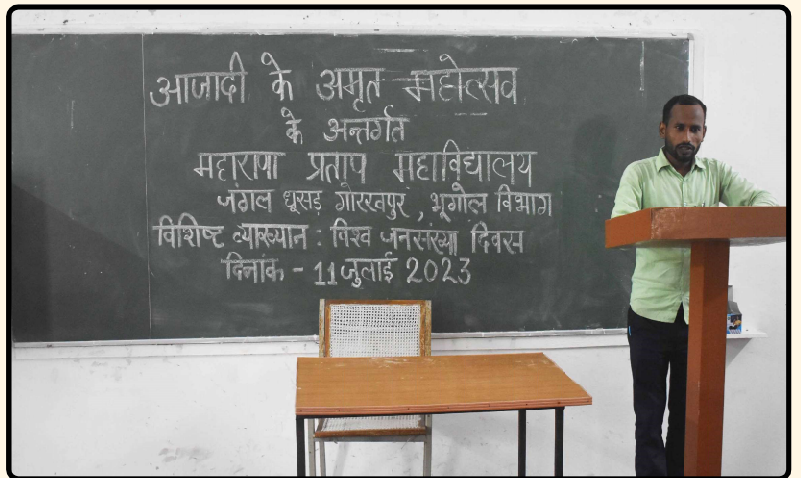 आजादी के अमृत महोत्सव
के अन्तर्गत
महाराणा प्रताप महाविद्यालय
जंगल धूसड़ गोरखपुर, भूगोल विभाग
विशिष्ट व्याख्यान : विश्व जनसंख्या दिवस
दिनांक - 11 जुलाई 2023